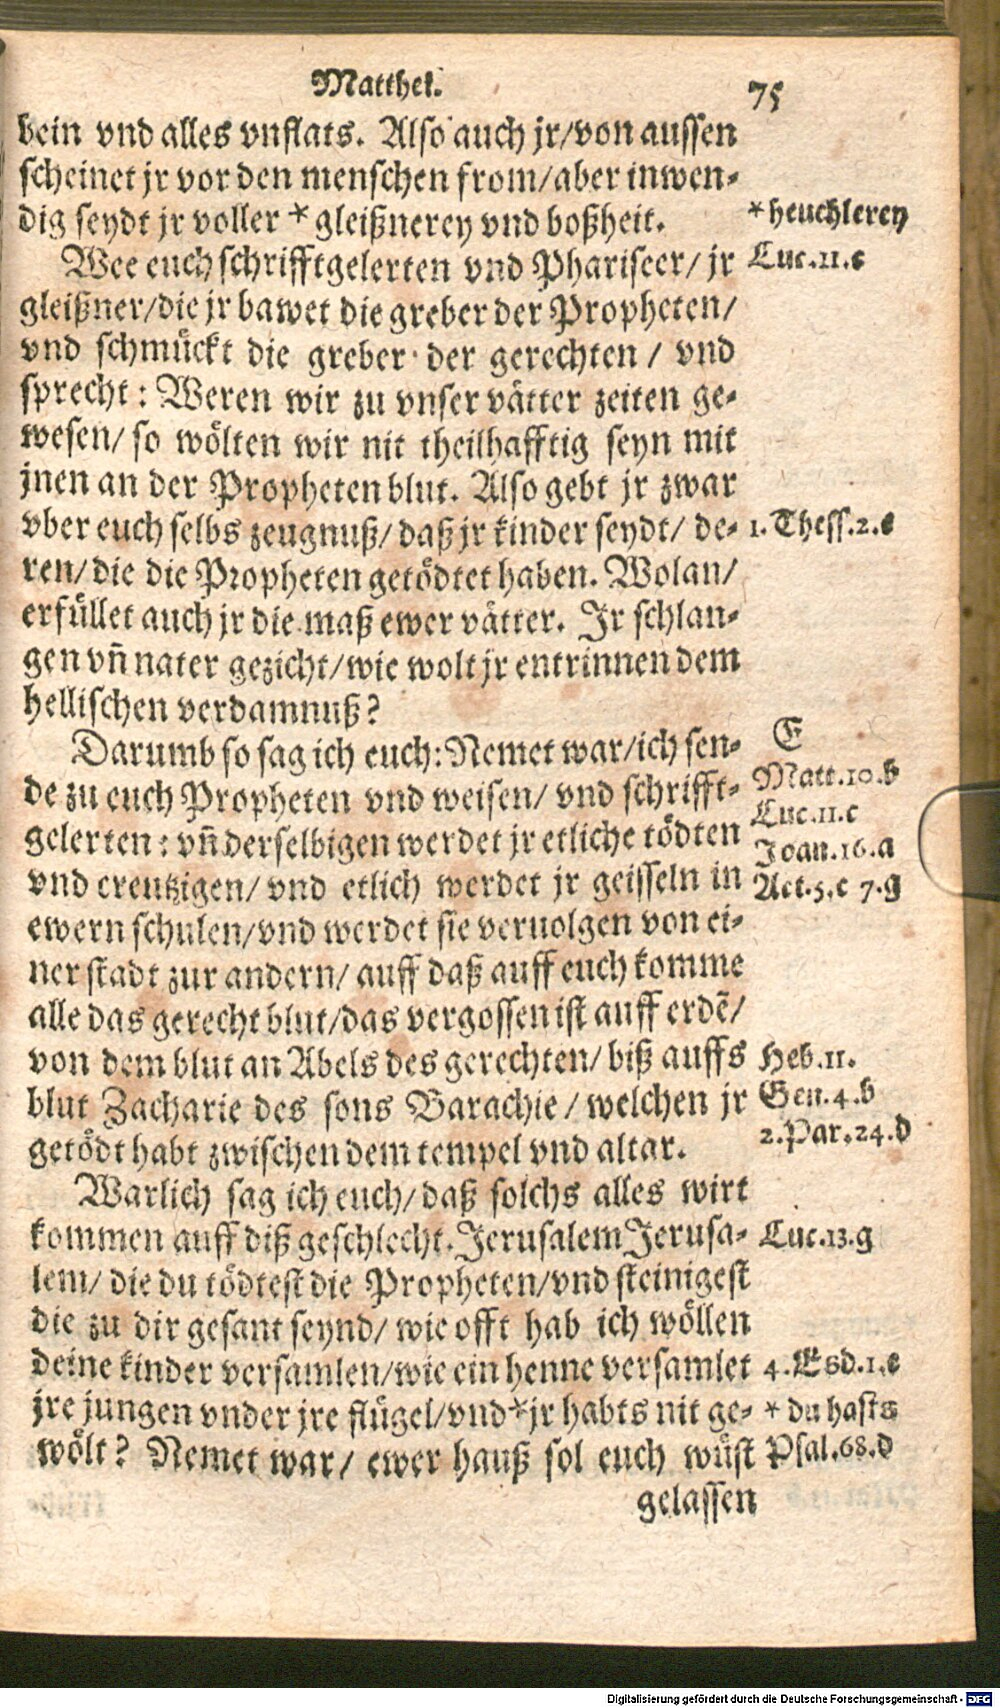 Matthei.
75
bein vnd alles vnflats. Also auch jr/von aussen
scheinet jr vor den menschen from/aber inwen-
dig seydt jr voller * gleißnerey vnd boßheit.
* heuchlerey
Wee euch schrifftgelerten vnd Phariseer/ jr
Luc.11.e
gleißner/die jr bawet die greber der Propheten/
vnd schmückt die greber der gerechten / vnd
sprecht: Weren wir zu vnser vätter zeiten ge-
wesen/ so wölten wir nit theilhafftig seyn mit
jnen an der Propheten blut. Also gebt jr zwar
vber euch selbs zeugnuß/ daß jr kinder seydt/ de-
1. Thess.2.c
ren/die die Propheten getödtet haben. Wolan/
erfüllet auch jr die maß ewer vätter. Jr schlan-
gen vñ nater gezicht/wie wolt jr entrinnen dem
hellischen verdamnuß?
Darumb so sag ich euch: Nemet war/ich sen-
E
de zu euch Propheten vnd weisen/ vnd schrifft-
Matt.10.b
gelerten: vñ derselbigen werdet jr etliche tödten
Luc.11.c
Joan.16.a
vnd creutzigen/ vnd etlich werdet jr geisseln in
Act.5.c 7.g
ewern schulen/vnd werdet sie veruolgen von ei-
ner stadt zur andern/ auff daß auff euch komme
alle das gerecht blut/das vergossen ist auff erdē/
von dem blut an Abels des gerechten/ biß auffs
Heb.11.
blut Zacharie des sons Barachie / welchen jr
Gen.4.b
getödt habt zwischen dem tempel vnd altar.
2.Par.24.d
Warlich sag ich euch/ daß solchs alles wirt
kommen auff diß geschlecht. Jerusalem Jerusa-
Luc.13.g
lem/ die du tödtest die Propheten/vnd steinigest
die zu dir gesant seynd/ wie offt hab ich wöllen
deine kinder versamlen/wie ein henne versamlet
4.Esd.1.e
jre jungen vnder jre flügel/vnd * jr habts nit ge-
* du hasts
wölt? Nemet war/ ewer hauß sol euch wüst
Psal.68.d
gelassen
Digitalisierung gefördert durch die Deutsche Forschungsgemeinschaft - DFG